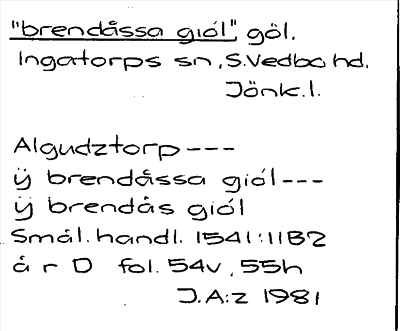 "brendåssa giól", göl.
Ingatorps sn, S.Vedbo hd.
Jönk.l.
Algudztorp---
ÿ brendåssa giól---
ÿ brendås giól
Smål.handl. 1541:11B2
å r D fol. 54v, 55h
J.A:z 1981